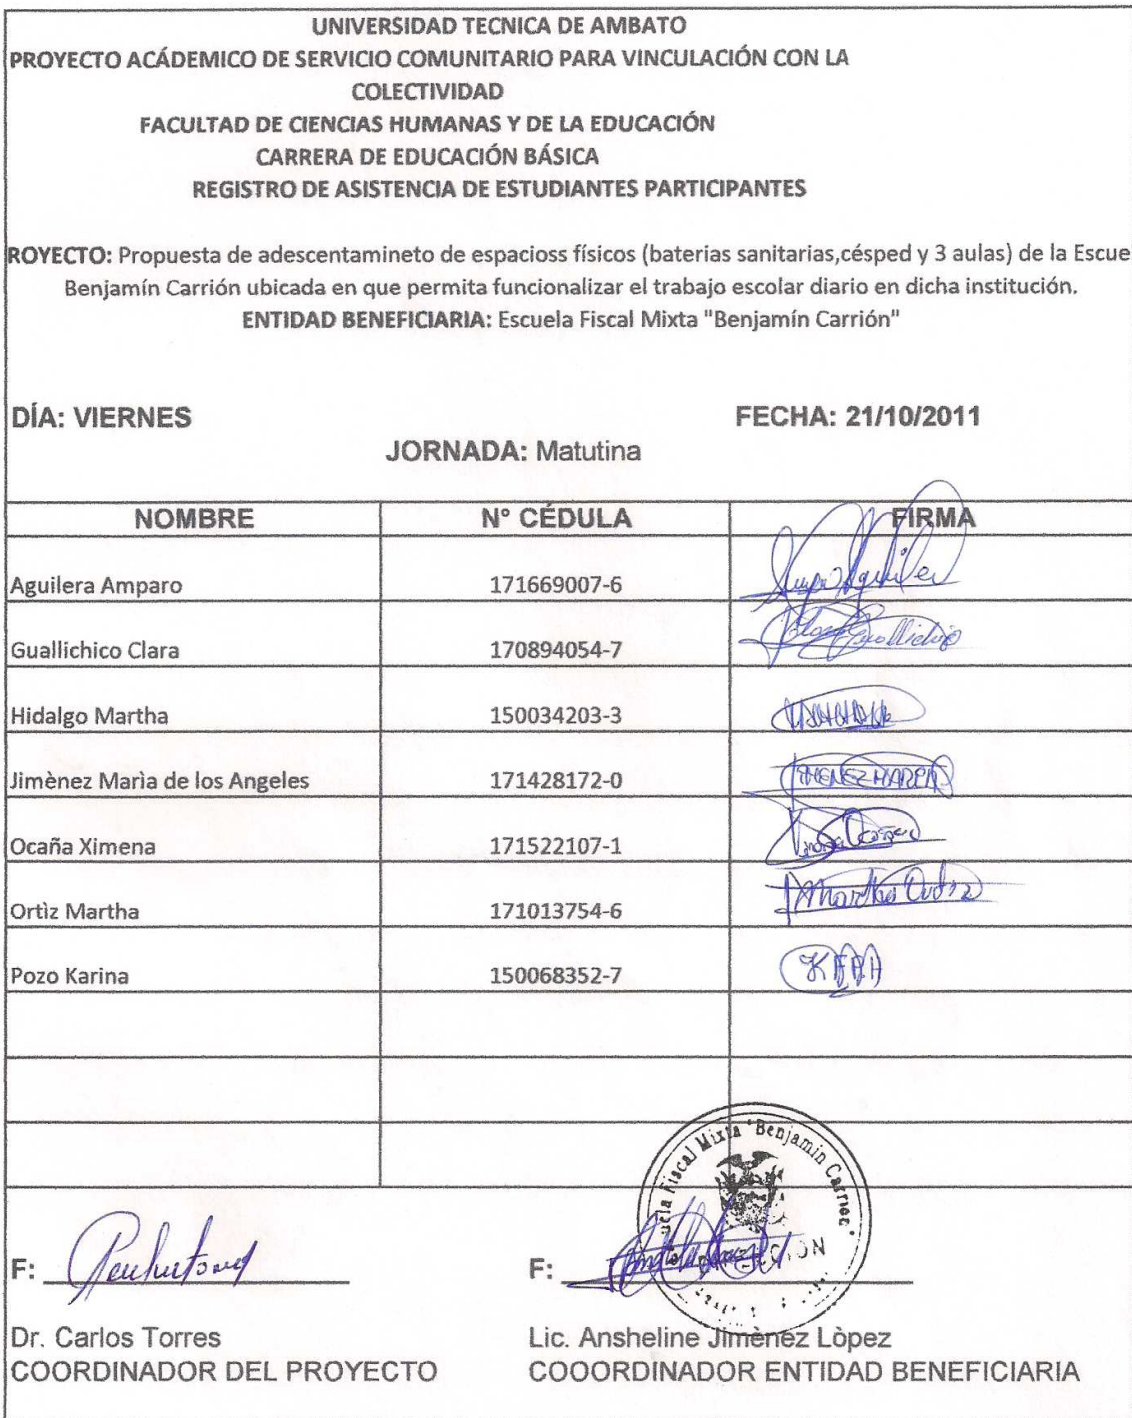 UNIVERSIDAD TECNICA DE AMBATO
PROYECTO ACÁDEMICO DE SERVICIO COMUNITARIO PARA VINCULACIÓN CON LA
COLECTIVIDAD
FACULTAD DE CIENCIAS HUMANAS Y DE LA EDUCACIÓN
CARRERA DE EDUCACIÓN BÁSICA
REGISTRO DE ASISTENCIA DE ESTUDIANTES PARTICIPANTES
ROYECTO: Propuesta de adescentamineto de espacioss físicos (baterias sanitarias,césped y 3 aulas) de la Escue
Benjamín Carrión ubicada en que permita funcionalizar el trabajo escolar diario en dicha institución.
ENTIDAD BENEFICIARIA: Escuela Fiscal Mixta "Benjamín Carrión"
DÍA: VIERNES FECHA: 21/10/2011
JORNADA: Matutina
NOMBRE N° CÉDULA FIRMA
Aguilera Amparo 171669007-6
Guallichico Clara 170894054-7
Hidalgo Martha 150034203-3
Jimènez Marìa de los Angeles 171428172-0 JIMENEZ MARIA
Ocaña Ximena 171522107-1
Ortìz Martha 171013754-6 Martha Ortiz
Pozo Karina 150068352-7
Fiscal Mixta "Benjamin Carrion"
F: F:
Dr. Carlos Torres Lic. Ansheline Jimènez Lòpez
COORDINADOR DEL PROYECTO COOORDINADOR ENTIDAD BENEFICIARIA